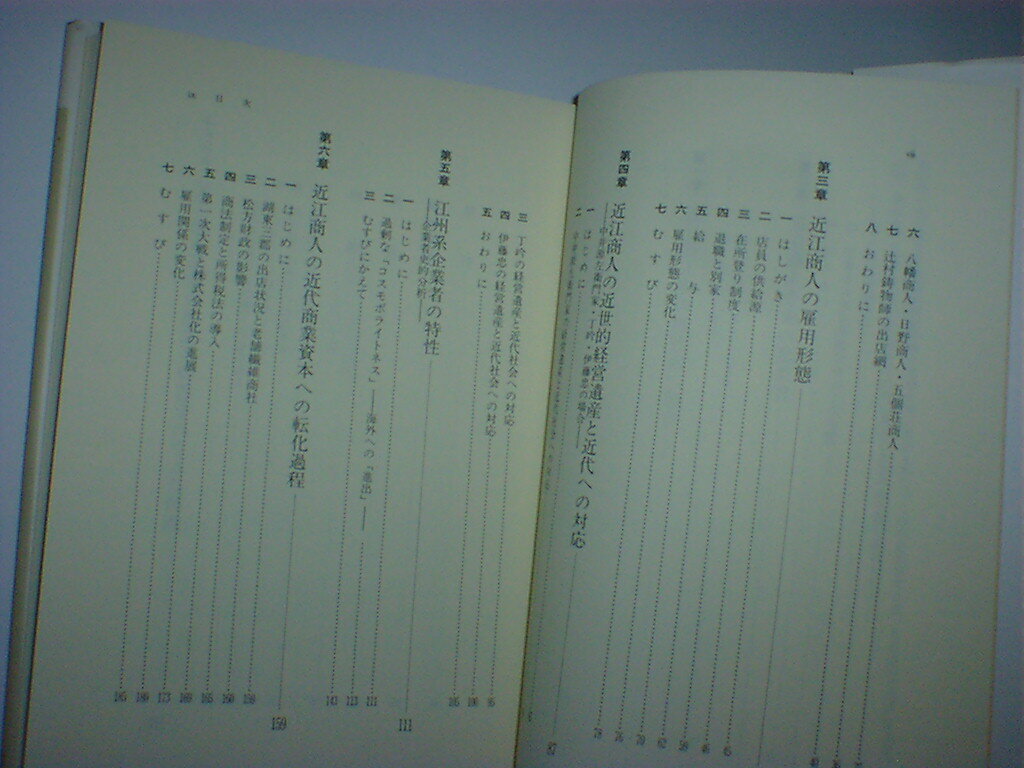 六 八幡商人・日野商人・五個荘商人
七 辻村鋳物師の出店網
八 おわりに
第三章 近江商人の雇用形態
一 はしがき 45
二 店員の供給源 46
三 在所登り制度
四 退職と別家 62
五 給与 70
六 雇用形態の変化 76
七 むすび 78
第四章 近江商人の近世的経営遺産と近代への対応 87
一 はじめに
三 丁吟の経営遺産と近代社会への対応 95
四 伊藤忠の経営遺産と近代社会への対応 100
五 おわりに 106
第五章 江州系企業者の特性 111
――企業者史的分析――
一 はじめに 111
二 過剰な「コスモポライトネス」――海外への「進出」―― 123
三 むすびにかえて 142
第六章 近江商人の近代商業資本への転化過程 159
一 はじめに 159
二 湖東三郡の出店状況と老舗繊維商社 160
三 松方財政の影響 165
四 商法制定と所得税法の導入 169
五 第一次大戦と株式会社化の進展 173
六 雇用関係の変化 180
七 むすび 185
目次